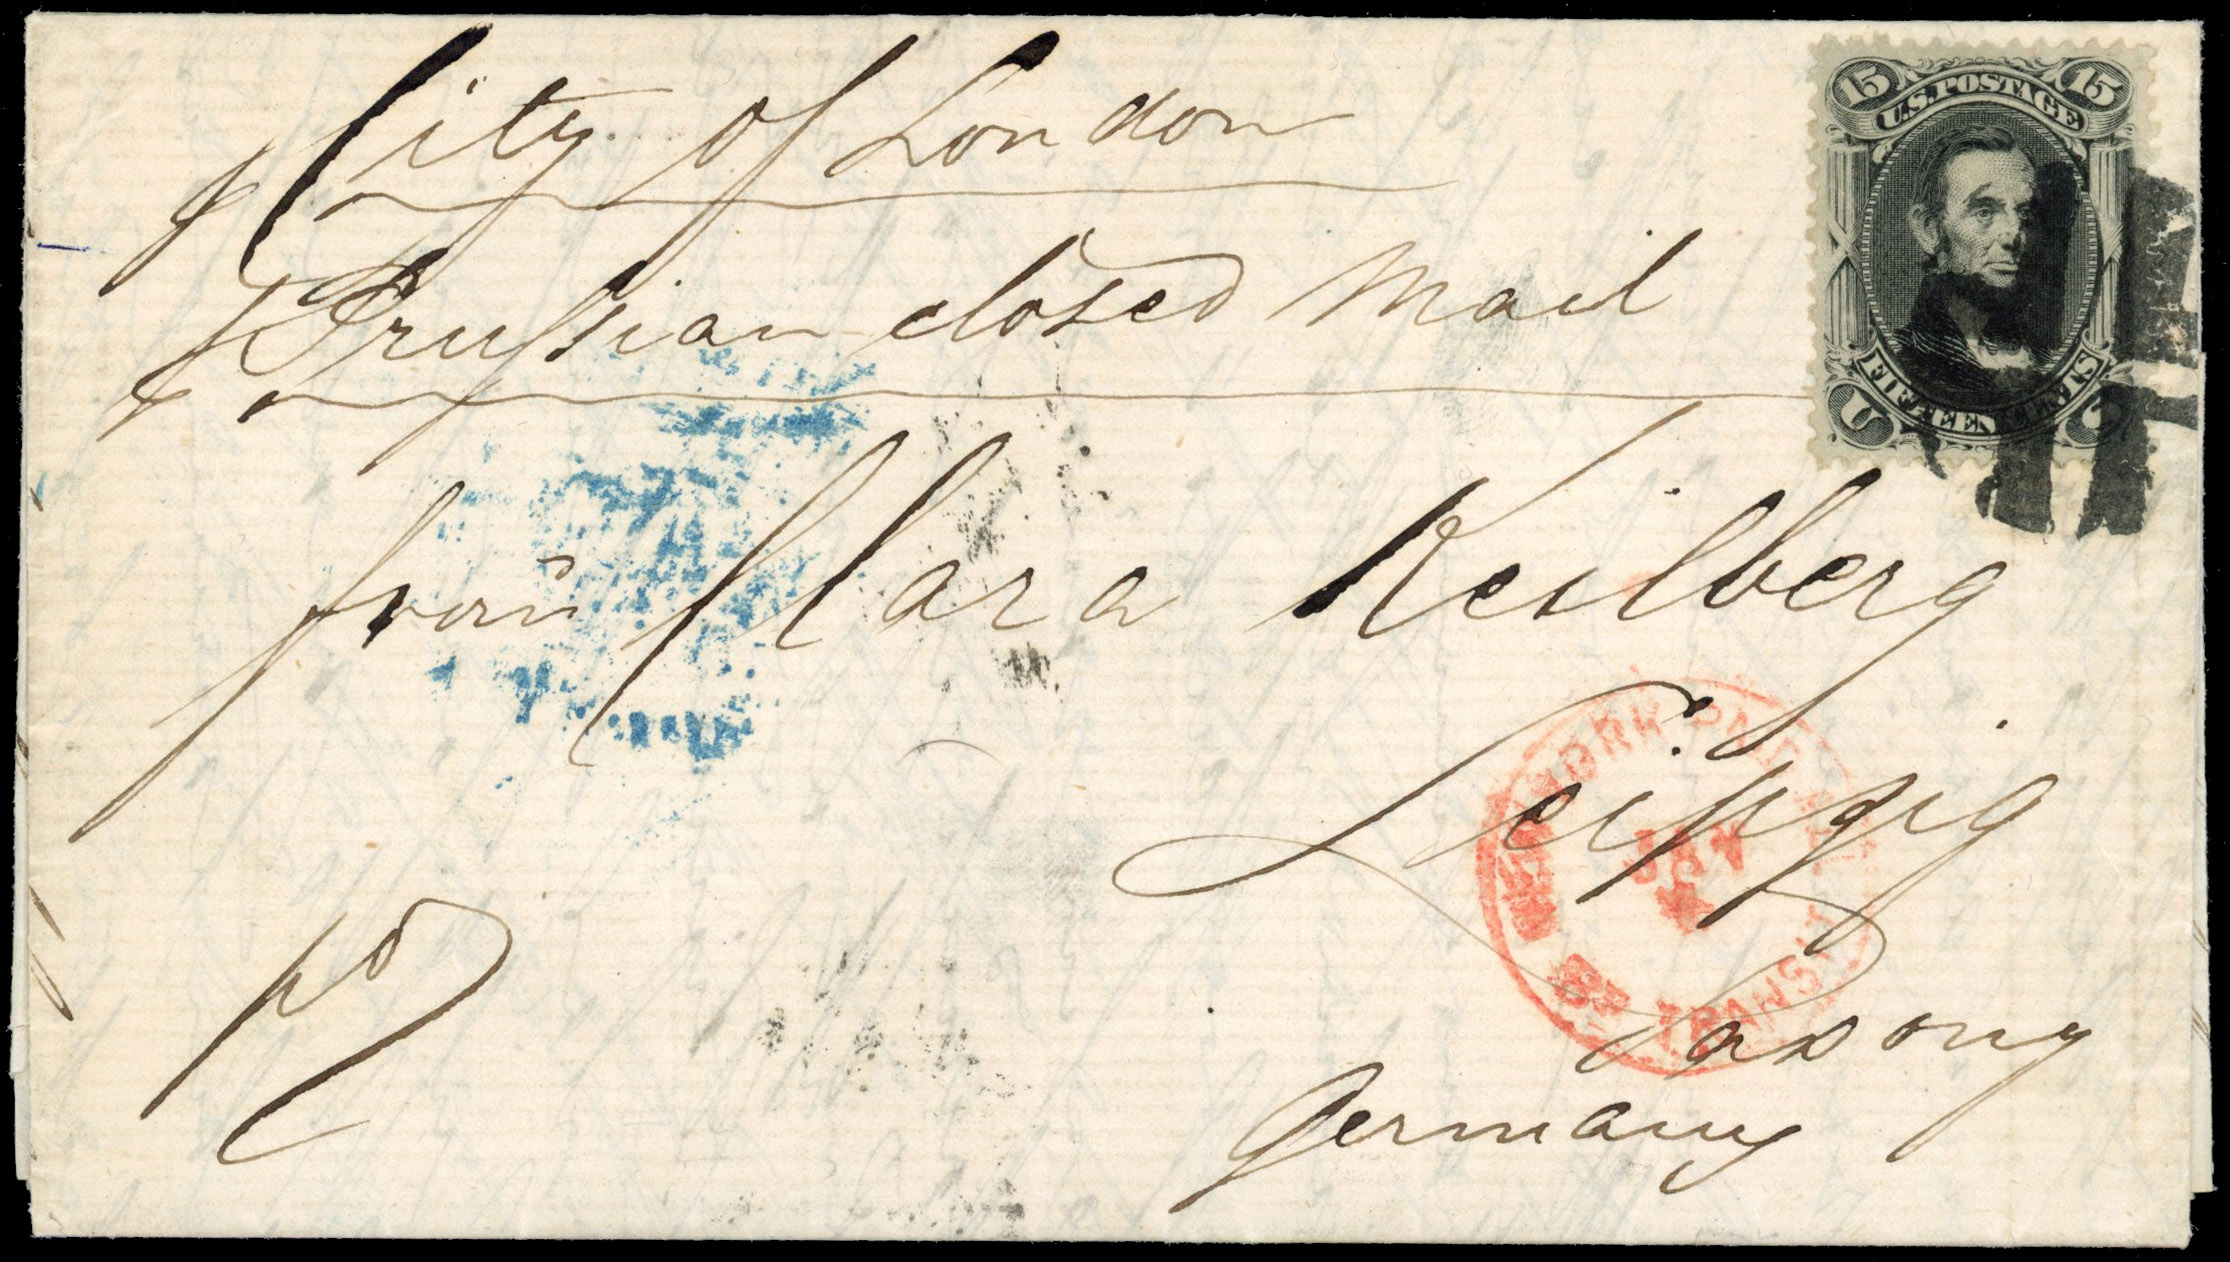 p City of London
p Prussian closed Mail
frau Clara Keilberg
Leipzig
Saxony
Germany
15 U.S. POSTAGE 15
U FIFTEEN CENTS S
NEW YORK PAID ALL
JAN
TRANSIT